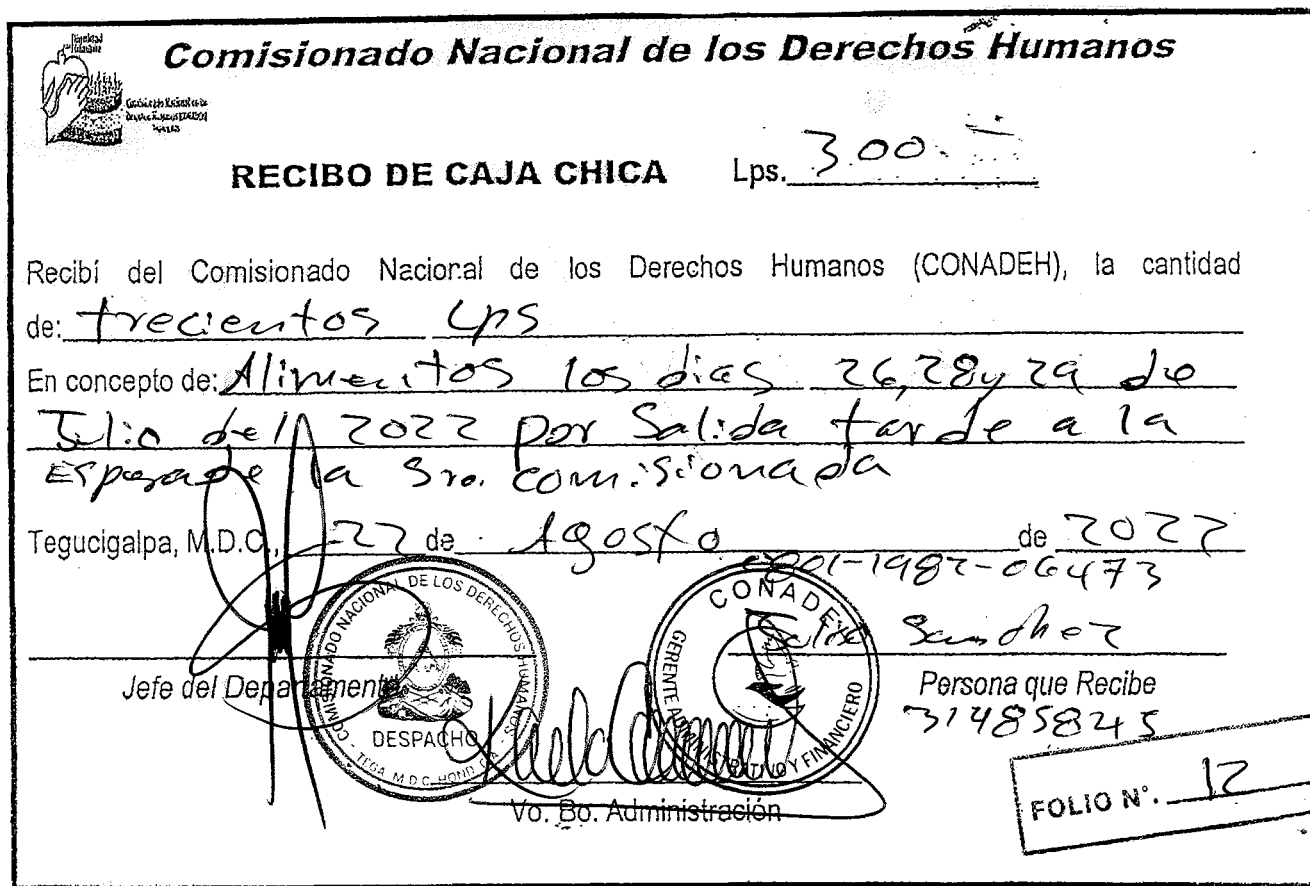 Comisionado Nacional de los Derechos Humanos
RECIBO DE CAJA CHICA Lps. 300.
Recibí del Comisionado Nacional de los Derechos Humanos (CONADEH), la cantidad
de: trecientos Lps
En concepto de: Alimentos los dias 26,28 y 29 de
Julio del 2022 por Salida tarde a la
Espera de la Sra. comisionada
Tegucigalpa, M.D.C., 22 de Agosto de 2022
0801-1982-06473
Sanchez
Jefe del Departamento
Persona que Recibe
31485845
COMISIONADO NACIONAL DE LOS DERECHOS HUMANOS
DESPACHO
TEGA. M.D.C. HOND. C.A.
CONADEH
GERENTE ADMINISTRATIVO Y FINANCIERO
Vo. Bo. Administración
FOLIO N°. 12